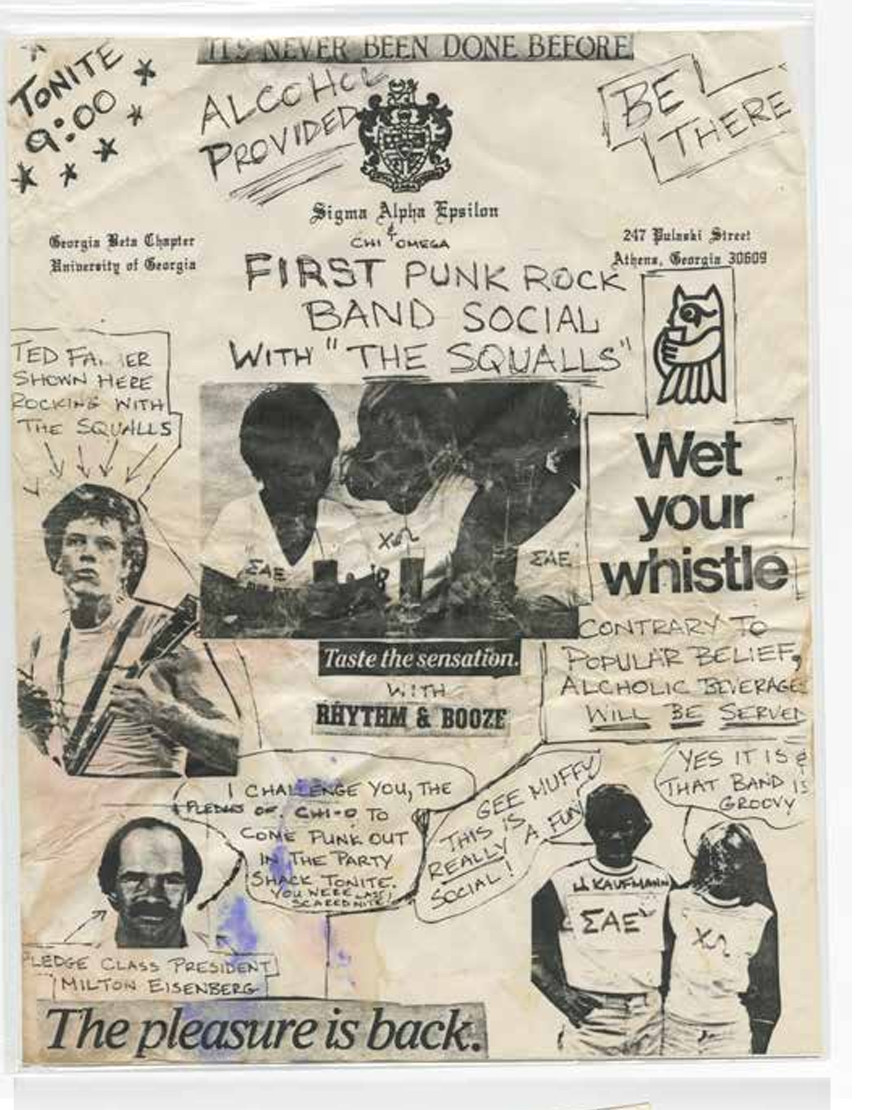 IT'S NEVER BEEN DONE BEFORE
TONITE
9:00
ALCOHOL
PROVIDED
BE
THERE
Sigma Alpha Epsilon
&
CHI OMEGA
Georgia Beta Chapter
University of Georgia
247 Pulaski Street
Athens, Georgia 30609
FIRST PUNK ROCK
BAND SOCIAL
WITH "THE SQUALLS"
TED
SHOWN HERE
ROCKING WITH
THE SQUALLS
ΣAE
ΧΩ
ΣAE
Wet
your
whistle
Taste the sensation.
WITH
RHYTHM & BOOZE
CONTRARY TO
POPULAR BELIEF,
ALCHOLIC BEVERAGES
WILL BE SERVED
I CHALLENGE YOU, THE
PLEDGES OF CHI-O TO
COME PUNK OUT
IN THE PARTY
SHACK TONITE.
YOU WERE LAST
SCARED NITE!
GEE MUFFY
THIS IS
REALLY A FUN
SOCIAL!
YES IT IS &
THAT BAND IS
GROOVY
KAUFMANN
ΣAE
ΧΩ
PLEDGE CLASS PRESIDENT
MILTON EISENBERG
The pleasure is back.